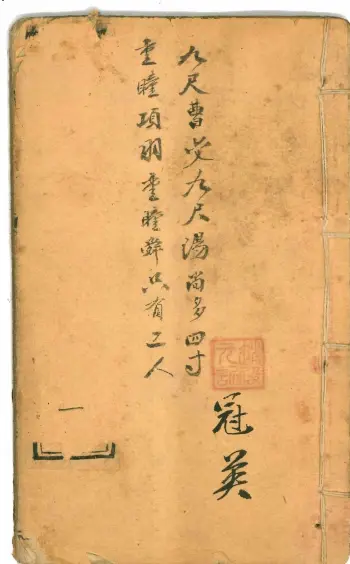 九尺曹交九尺湯尚多四寸
重瞳項羽重瞳舜只有二人
冠英
一